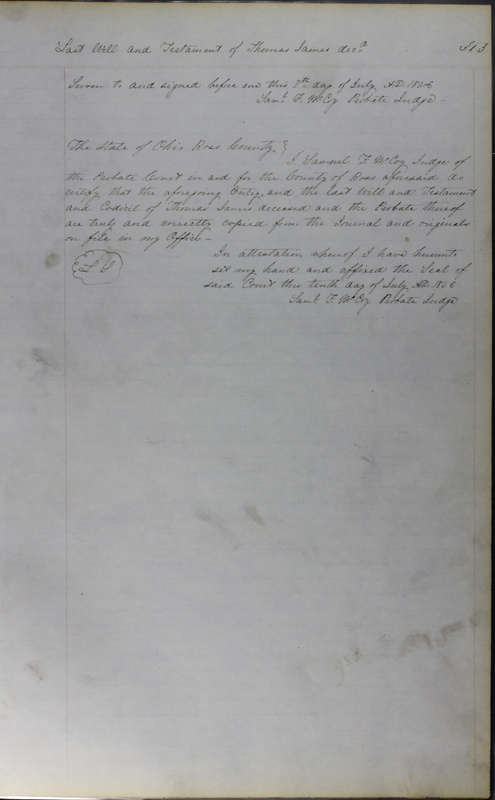 Last Will and Testament of Thomas James decd
Sworn to and signed before me this 8th day of July, A.D. 1856
Saml F. McCoy Probate Judge
The State of Ohio Ross County }
I Samuel F. McCoy Judge of
the Probate Court in and for the County of Ross aforesaid do
certify that the aforegoing Entry, and the Last Will and Testament
and Codicil of Thomas James deceased and the Probate thereof
are truly and correctly copied from the Journal and originals
on file in my Office —
In attestation whereof I have hereunto
set my hand and affixed the Seal of
L S
said Court this tenth day of July, A.D. 1856
Saml F. McCoy Probate Judge